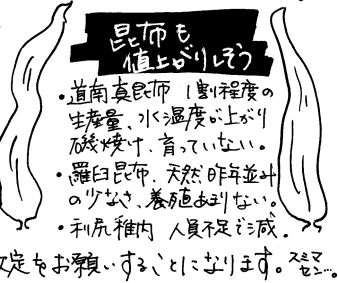 昆布も
値上がりしそう
・道南真昆布 1割程度の
生産量、水温度が上がり
磯焼け、育っていない。
・羅臼昆布、天然昨年並み
の少なさ、養殖あまりない。
・利尻稚内 人員不足で減.
定をお願いすることになります。スミマ
セン…。